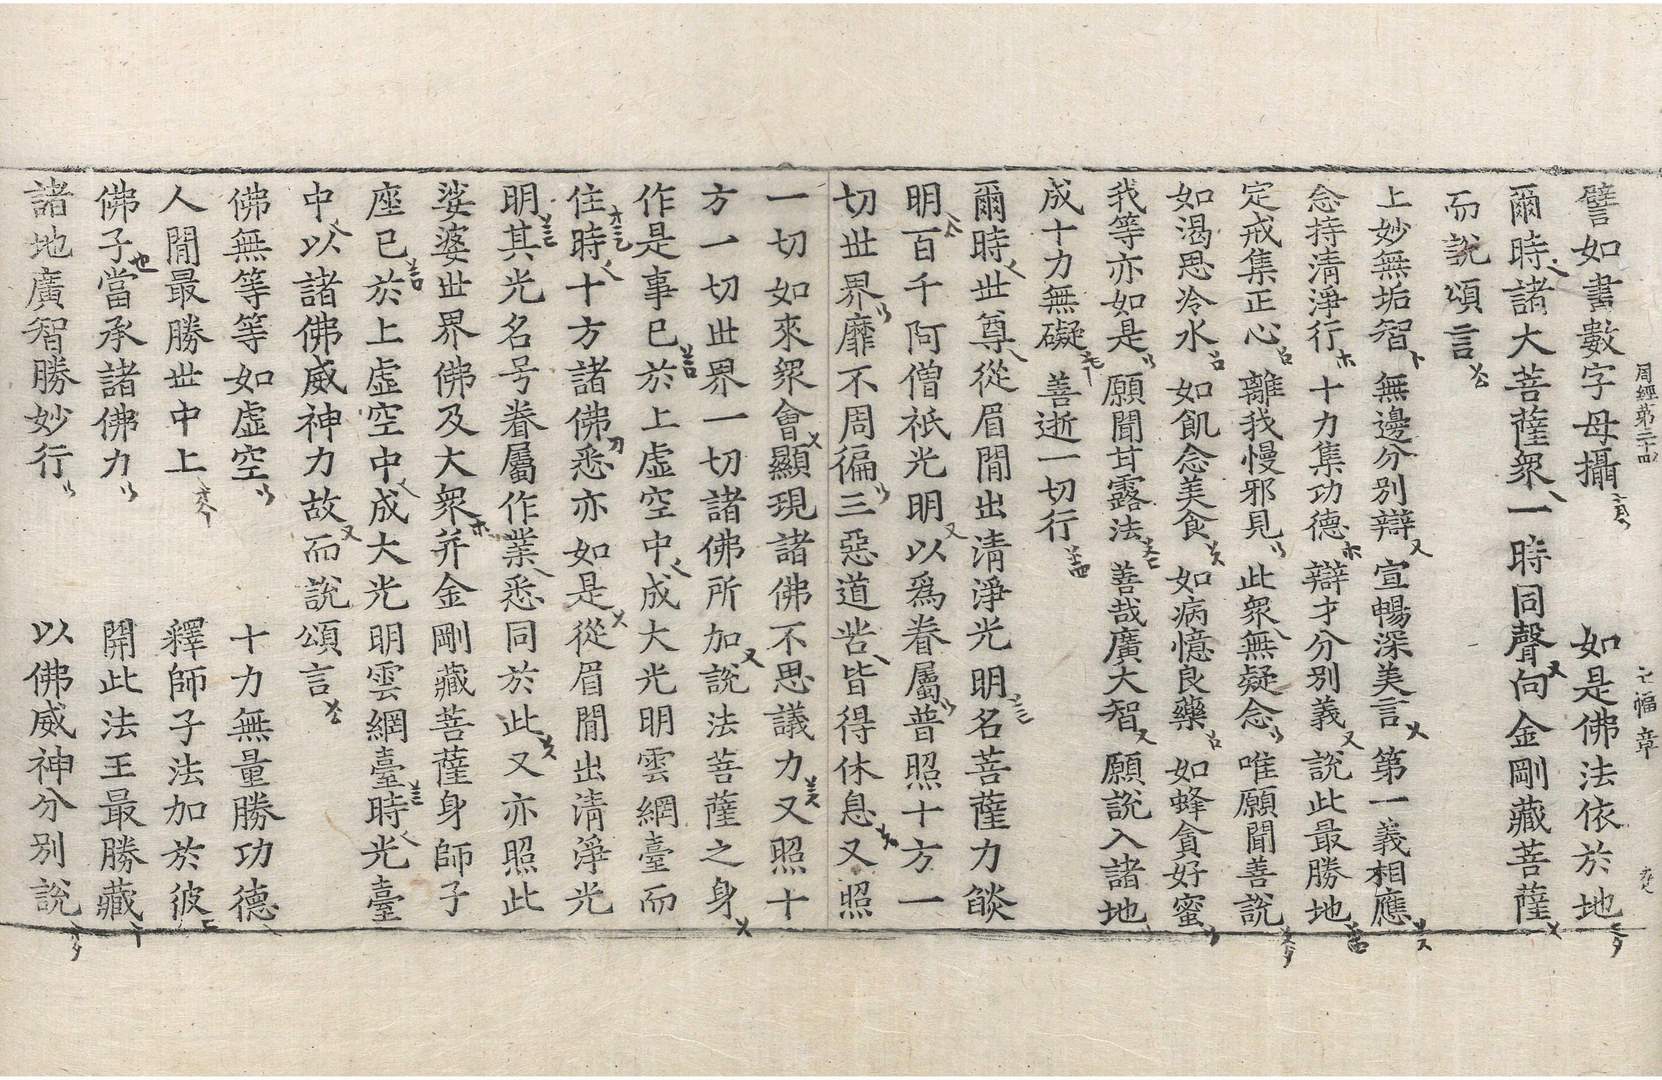 周經第三十四　七幅　章
譬如書數字母攝　如是佛法依於地
爾時諸大菩薩衆一時同聲向金剛藏菩薩
而說頌言
上妙無垢智　無邊分別辯　宣暢深美言　第一義相應
念持清淨行　十力集功德　辯才分別義　說此最勝地
定戒集正心　離我慢邪見　此衆無疑念　唯願聞善說
如渴思冷水　如飢念美食　如病憶良藥　如蜂貪好蜜
我等亦如是　願聞甘露法　善哉廣大智　願說入諸地
成十力無礙　善逝一切行
爾時世尊從眉間出清淨光明名菩薩力燄
明百千阿僧祇光明以爲眷屬普照十方一
切世界靡不周徧三惡道苦皆得休息又照
一切如來衆會顯現諸佛不思議力又照十
方一切世界一切諸佛所加說法菩薩之身
作是事已於上虛空中成大光明雲網臺而
住時十方諸佛悉亦如是從眉間出清淨光
明其光名号眷屬作業悉同於此又亦照此
娑婆世界佛及大衆并金剛藏菩薩身師子
座已於上虛空中成大光明雲網臺時光臺
中以諸佛威神力故而說頌言
佛無等等如虛空　十力無量勝功德
人間最勝世中上　釋師子法加於彼
佛子當承諸佛力　開此法王最勝藏
諸地廣智勝妙行　以佛威神分別說